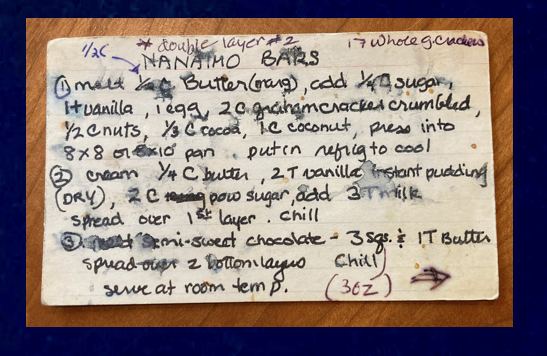 1/2C * double layer #2 17 whole g. crackers
NANAIMO BARS
① melt C Butter (marg), add 1/4 C sugar,
1 t vanilla, 1 egg, 2 C graham cracker crumbled,
1/2 C nuts, 1/3 C cocoa, 1 C coconut, press into
8x8 or 8x10 pan. put in refrig to cool
② cream 1/4 C butter, 2 T vanilla instant pudding
(DRY), 2 C pow sugar, add 3 T milk
spread over 1st layer. Chill
③ melt semi-sweet chocolate - 3 sqs. & 1T Butter
spread over 2 bottom layers Chill
serve at room temp. (3oz)